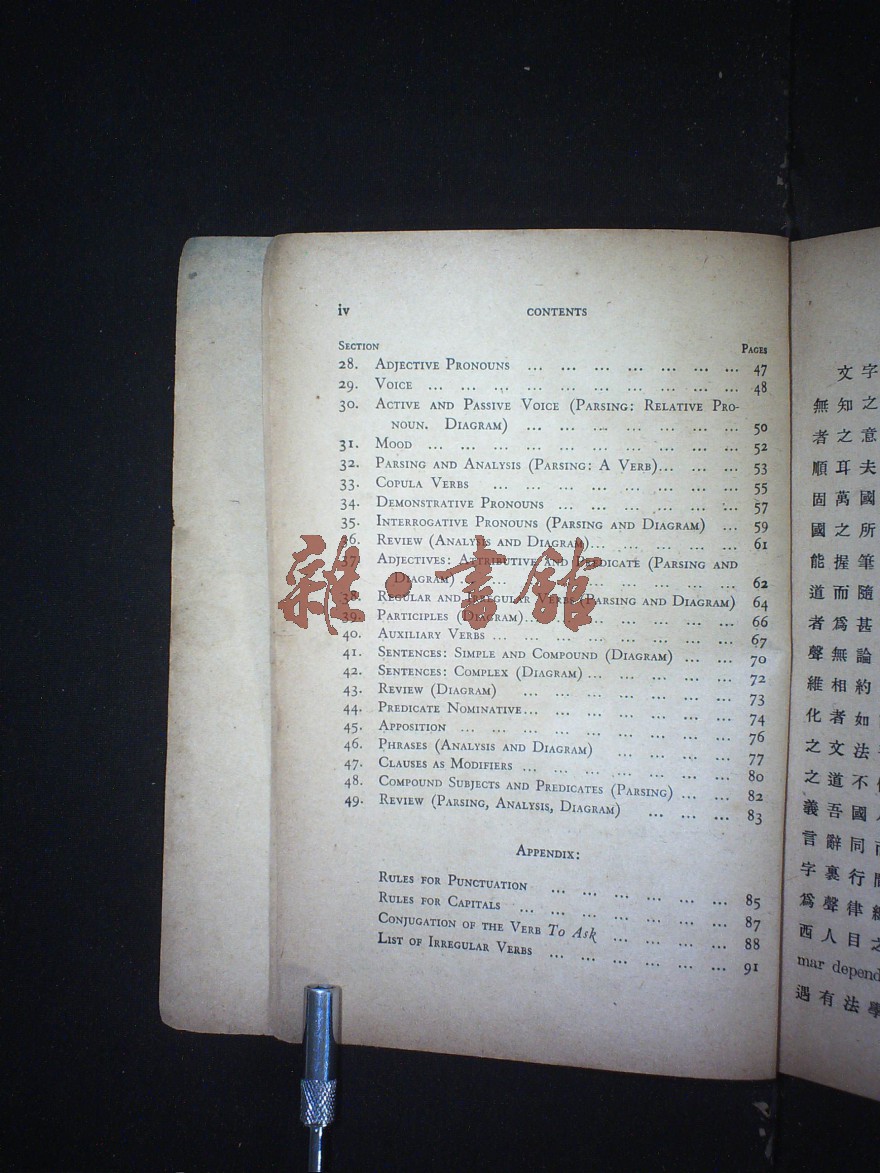 iv CONTENTS
SECTION PAGES
28. ADJECTIVE PRONOUNS ... ... ... ... ... ... ... 47
29. VOICE ... ... ... ... ... ... ... ... ... ... ... 48
30. ACTIVE AND PASSIVE VOICE (PARSING: RELATIVE PRO-
NOUN. DIAGRAM) ... ... ... ... ... ... ... 50
31. MOOD ... ... ... ... ... ... ... ... ... ... ... 52
32. PARSING AND ANALYSIS (PARSING: A VERB)... ... ... 53
33. COPULA VERBS ... ... ... ... ... ... ... ... 55
34. DEMONSTRATIVE PRONOUNS ... ... ... ... ... ... 57
35. INTERROGATIVE PRONOUNS (PARSING AND DIAGRAM) ... 59
36. REVIEW (ANALYSIS AND DIAGRAM)... ... ... ... ... 61
37. ADJECTIVES: ATTRIBUTIVE AND PREDICATE (PARSING AND
DIAGRAM) ... ... ... ... ... ... ... ... ... 62
38. REGULAR AND IRREGULAR VERBS (PARSING AND DIAGRAM) 64
39. PARTICIPLES (DIAGRAM)... ... ... ... ... ... ... 66
40. AUXILIARY VERBS ... ... ... ... ... ... ... ... 67
41. SENTENCES: SIMPLE AND COMPOUND (DIAGRAM) ... ... 70
42. SENTENCES: COMPLEX (DIAGRAM) ... ... ... ... ... 72
43. REVIEW (DIAGRAM) ... ... ... ... ... ... ... 73
44. PREDICATE NOMINATIVE... ... ... ... ... ... ... 74
45. APPOSITION ... ... ... ... ... ... ... ... ... 76
46. PHRASES (ANALYSIS AND DIAGRAM) ... ... ... ... 77
47. CLAUSES AS MODIFIERS ... ... ... ... ... ... ... 80
48. COMPOUND SUBJECTS AND PREDICATES (PARSING) ... ... 82
49. REVIEW (PARSING, ANALYSIS, DIAGRAM) ... ... ... 83
APPENDIX:
RULES FOR PUNCTUATION ... ... ... ... ... ... 85
RULES FOR CAPITALS ... ... ... ... ... ... ... 87
CONJUGATION OF THE VERB To Ask ... ... ... ... 88
LIST OF IRREGULAR VERBS ... ... ... ... ... ... 91
雜·書館
文字
無知之
者之意
順耳夫
固萬國
國之所
能握筆
道而隨
者爲甚
聲無論
維相約
化者如
之文法
之道不
義吾國
言辭同
字裏行
爲聲律
西人目之
mar depend
遇有法學